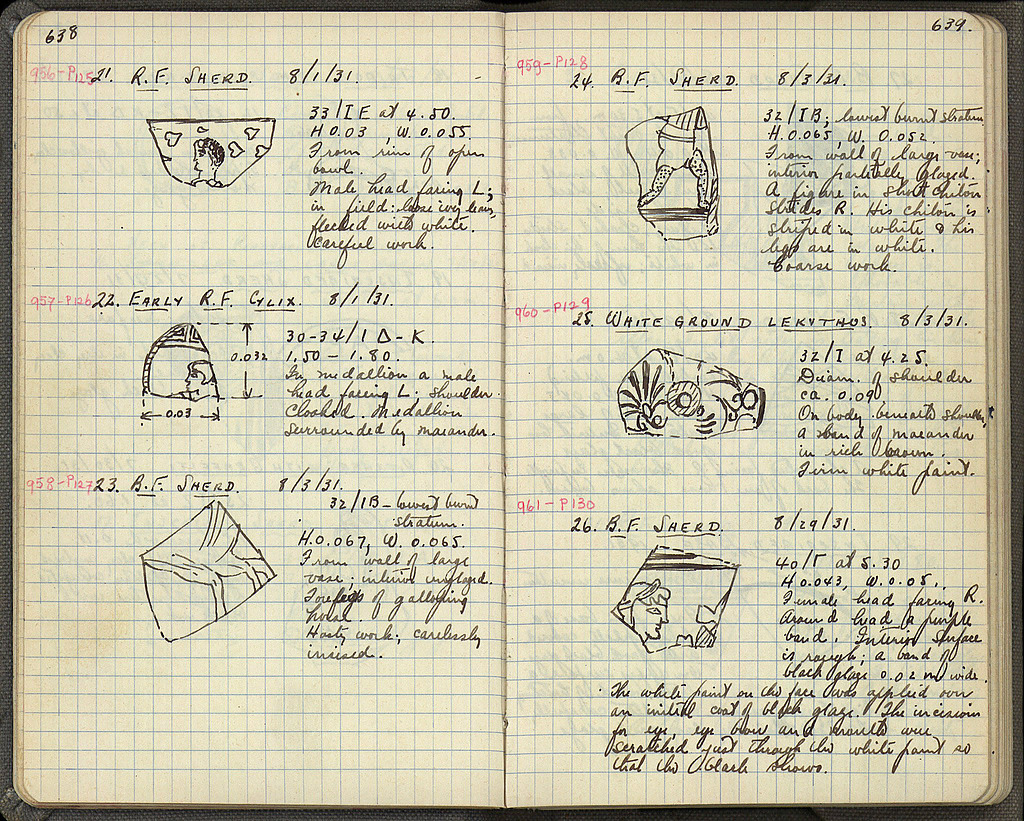 638
956-P125 21. R.F. SHERD. 8/1/31.
33/IE at 4.50.
H 0.03, W. 0.055.
From rim of open
bowl.
Male head facing L;
in field: loose ivy leaves,
flecked with white.
Careful work.
957-P126 22. EARLY R.F. CYLIX. 8/1/31.
0.032
0.03
30-34/1 Δ-K.
1.50 - 1.80.
In medallion a male
head facing L; shoulder
cloaked. Medallion
surrounded by maeander.
958-P127 23. B.F. SHERD. 8/3/31.
32/IB - lowest burnt
stratum.
H. 0.067, W. 0.065.
From wall of large
vase; interior unglazed.
Forelegs of galloping
horse.
Hasty work; carelessly
incised.
639.
959-P128
24. B.F. SHERD. 8/3/31.
32/IB; lowest burnt stratum
H. 0.065, W. 0.052
From wall of large vase;
interior partially glazed.
A figure in short chiton
strides R. His chiton is
striped in white & his
legs are in white.
Coarse work.
960-P129
25. WHITE GROUND LEKYTHOS. 8/3/31.
32/I at 4.25.
Diam. of shoulder
ca. 0.090
On body beneath shoulder,
a band of maeander
in rich brown.
Firm white paint.
961-P130
26. B.F. SHERD. 8/29/31.
40/Γ at 5.30
H 0.043, W. 0.05.
Female head facing R.
Around head a purple
band. Interior surface
is rough; a band of
black glaze 0.02 m wide.
The white paint on the face was applied over
an initial coat of black glaze. The incisions
for eye, eye brow and mouth were
scratched just through the white paint so
that the black shows.